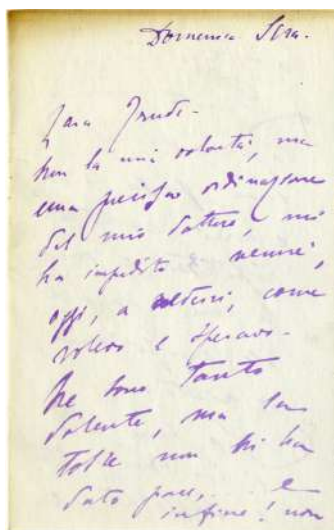 Domenica Sera.
Cara
non la mia volontà, ma
una precisa ordinazione
del mio dottore, mi
ha impedito venire,
oggi, a vedervi, come
volevo e speravo.
Ne sono tanto
dolente, ma la
tosse non mi ha
dato pace, e
infine! non